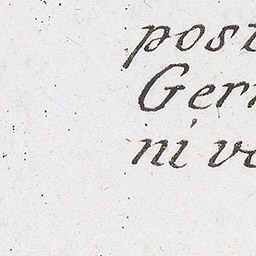 post
Ger
ni vo